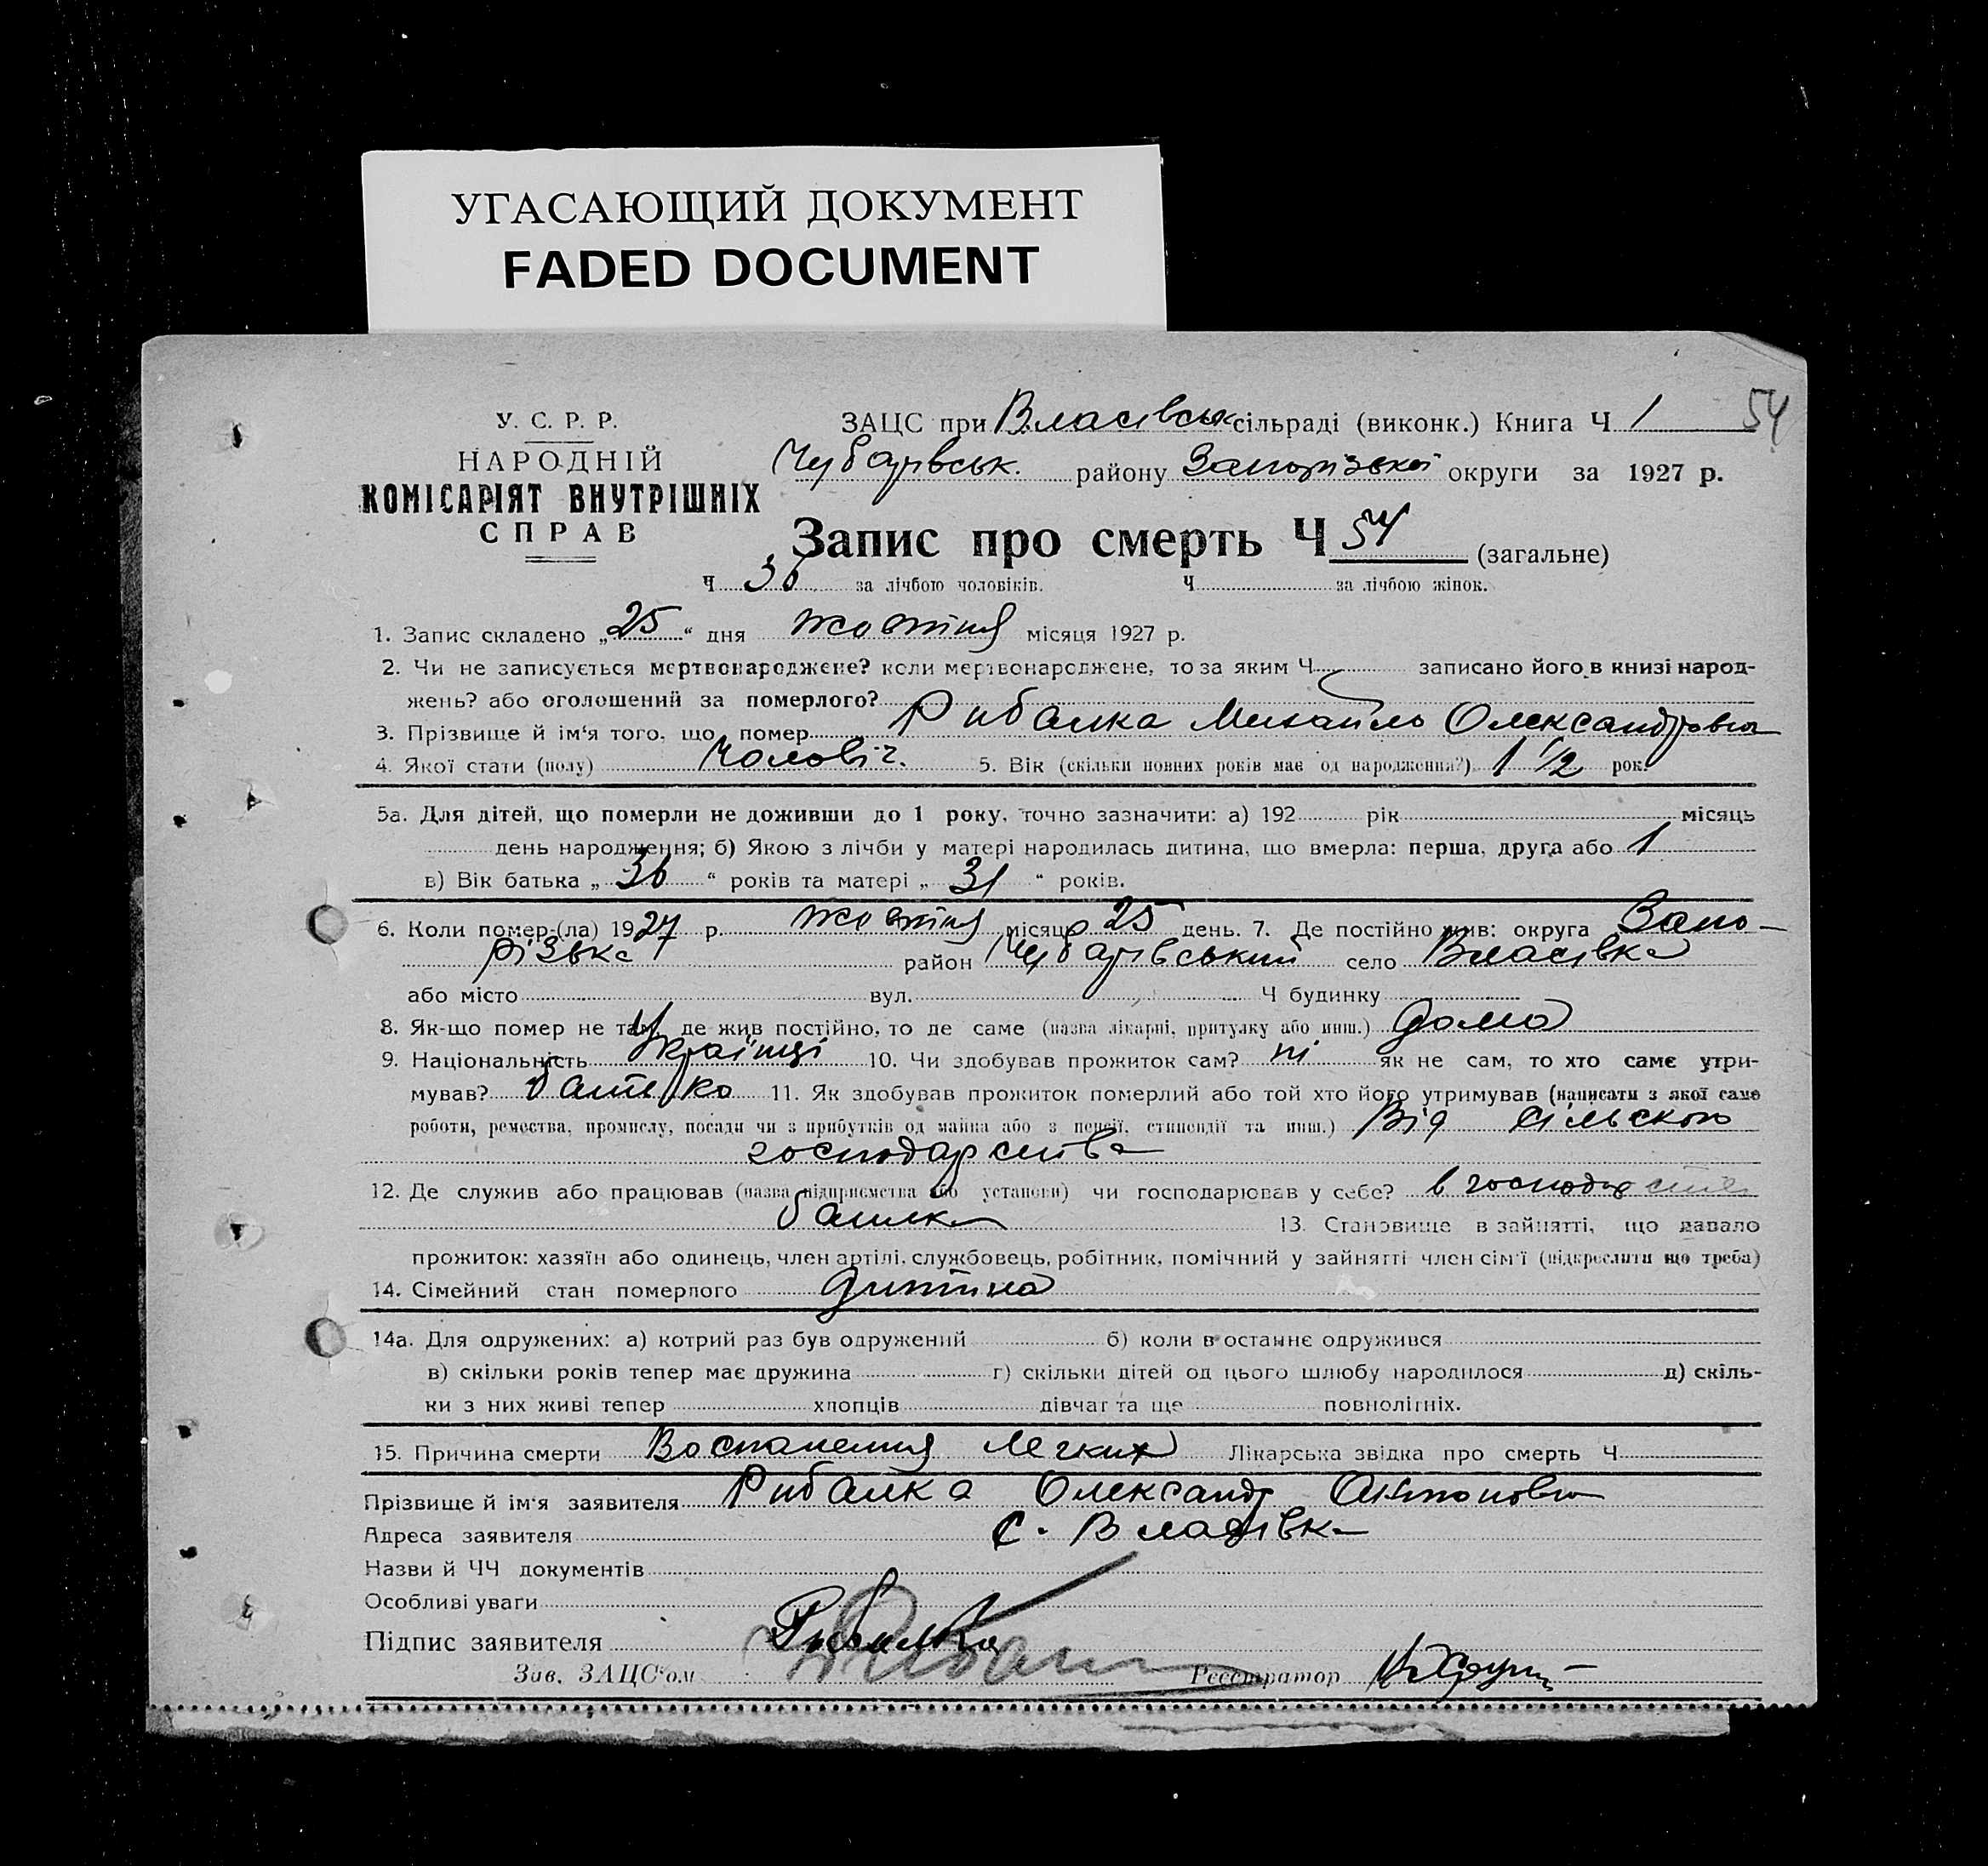 УГАСАЮЩИЙ ДОКУМЕНТ
FADED DOCUMENT
54
У. С. Р. Р.
НАРОДНІЙ
КОМІСАРІЯТ ВНУТРІШНІХ
СПРАВ
ЗАЦС при Власівськ сільраді (виконк.) Книга Ч 1
Чубарівськ. району Запорізької округи за 1927 р.
Запис про смерть Ч 54 (загальне)
Ч 36 за лічбою чоловіків. Ч за лічбою жінок.
1. Запис складено „ 25 “ дня жовтня місяця 1927 р.
2. Чи не записується мертвонароджене? коли мертвонароджене, то за яким Ч записано його в книзі народ-
жень? або оголошений за померлого?
3. Прізвище й ім'я того, що помер Рибалка Михайло Олександрович
4. Якої стати (полу) Чоловіч. 5. Вік (скільки повних років має од народження?) 1 1/2 рок.
5а. Для дітей, що померли не доживши до 1 року, точно зазначити: а) 192 рік місяць
день народження; б) Якою з лічби у матері народилась дитина, що вмерла: перша, друга або 1
в) Вік батька „ 36 “ років та матері „ 31 “ років.
6. Коли помер-(ла) 1927 р. жовтня місяця 25 день. 7. Де постійно жив: округа Запо-
різька район Чубарівський село Власівка
або місто вул. Ч будинку
8. Як-що помер не там, де жив постійно, то де саме (назва лікарні, притулку або инш.) дома
9. Національність Українці 10. Чи здобував прожиток сам? ні як не сам, то хто саме утри-
мував? батько 11. Як здобував прожиток померлий або той хто його утримував (написати з якої саме
роботи, ремества, промислу, посади чи з прибутків од майна або з пенсії, стипендії та инш.) Від сільского
господарства
12. Де служив або працював (назва підприємства або установи) чи господарював у себе? в господарстві
батька 13. Становище в зайнятті, що давало
прожиток: хазяїн або одинець, член артілі, службовець, робітник, помічний у зайнятті член сім'ї (підкреслити що треба)
14. Сімейний стан померлого дитина
14а. Для одружених: а) котрий раз був одружений б) коли в останнє одружився
в) скільки років тепер має дружина г) скільки дітей од цього шлюбу народилося д) скіль-
ки з них живі тепер хлопців дівчат та ще повнолітніх.
15. Причина смерти Воспаления легких Лікарська звідка про смерть Ч
Прізвище й ім'я заявителя Рибалка Олександр Антонович
Адреса заявителя с. Власівка
Назви й ЧЧ документів
Особливі уваги
Підпис заявителя Рибалка
Зав. ЗАЦС'ом Реєстратор